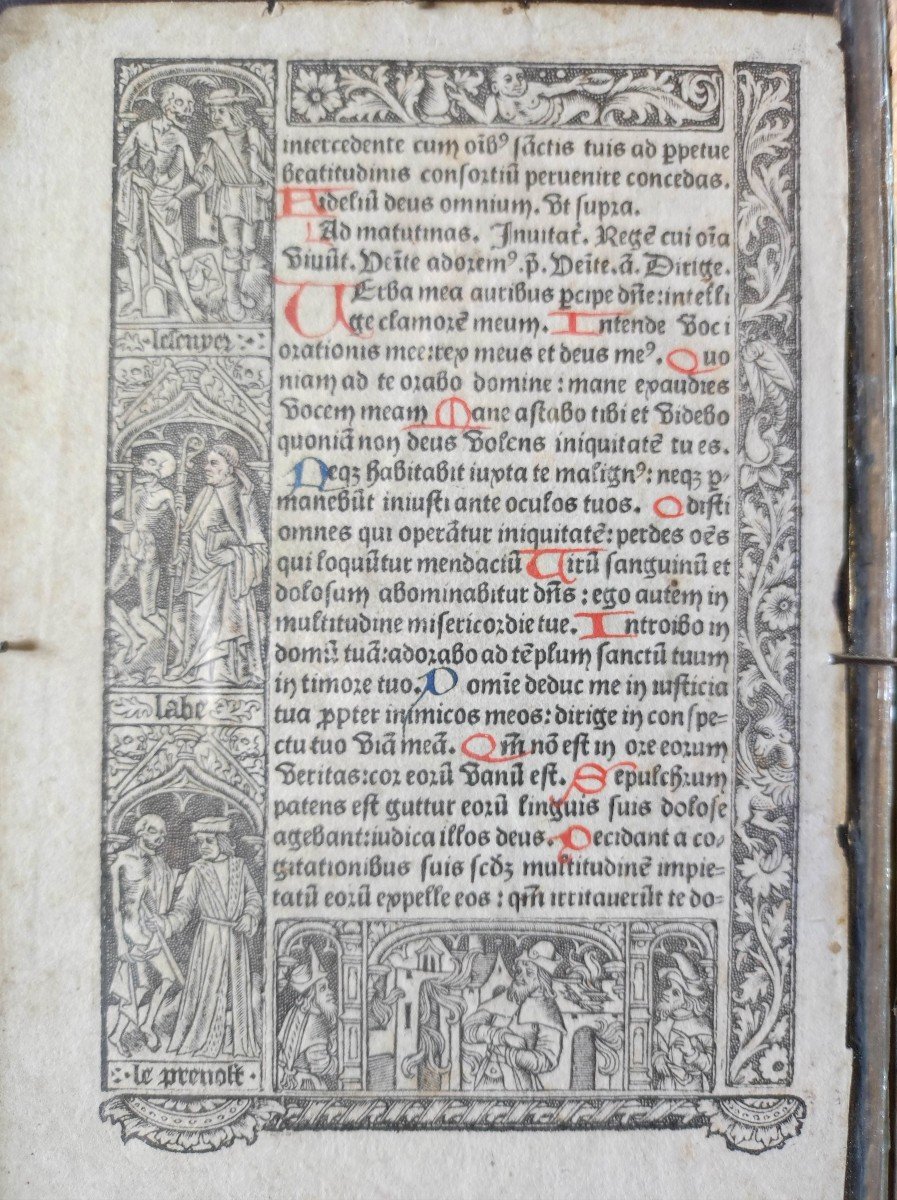 intercedente cum oībꝰ sāctis tuis ad ꝑpetue
beatitudinis consortiū peruenire concedas.
Fideliū deus omnium. Vt supra.
Ad matutinas. Inuitat̄. Regē cui oīa
viuūt. Veīte adoremꝰ. p̄. Veīte. ā. Dirige.
VErba mea auribus ꝑcipe dn̄e: intelli
ge clamorē meum. Intende voci
orationis mee: rex meus et deus meꝰ. Quo
niam ad te orabo domine: mane exaudies
vocem meam Mane astabo tibi et videbo
quoniā non deus volens iniquitatē tu es.
Neqꝫ habitabit iuxta te malignꝰ: neqꝫ ꝑ-
manebūt iniusti ante oculos tuos. Odisti
omnes qui operātur iniquitatē: perdes oēs
qui loquūtur mendaciū Uirū sanguinū et
dolosum abominabitur dn̄s: ego autem in
multitudine misericordie tue. Introibo in
domū tuā: adorabo ad tēplum sanctū tuum
in timore tuo. Domīe deduc me in iusticia
tua ꝓpter inimicos meos: dirige in conspe=
ctu tuo viā meā. Qm̄ nō est in ore eorum
veritas: cor eorū vanū est. Sepulchrum
patens est guttur eorū linguis suis dolose
agebant: iudica illos deus. Decidant a co-
gitationibus suis scd̄ꝫ multitudinē impie=
tatū eorū expelle eos: qm̄ irritauerūt te do=
lescuyer
labe
le preuost